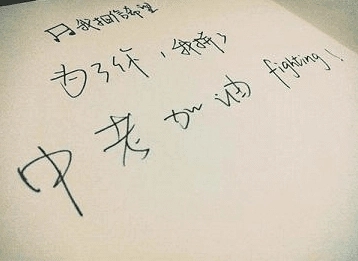 我相信希望
为了你,我拼了
中考加油 fighting!